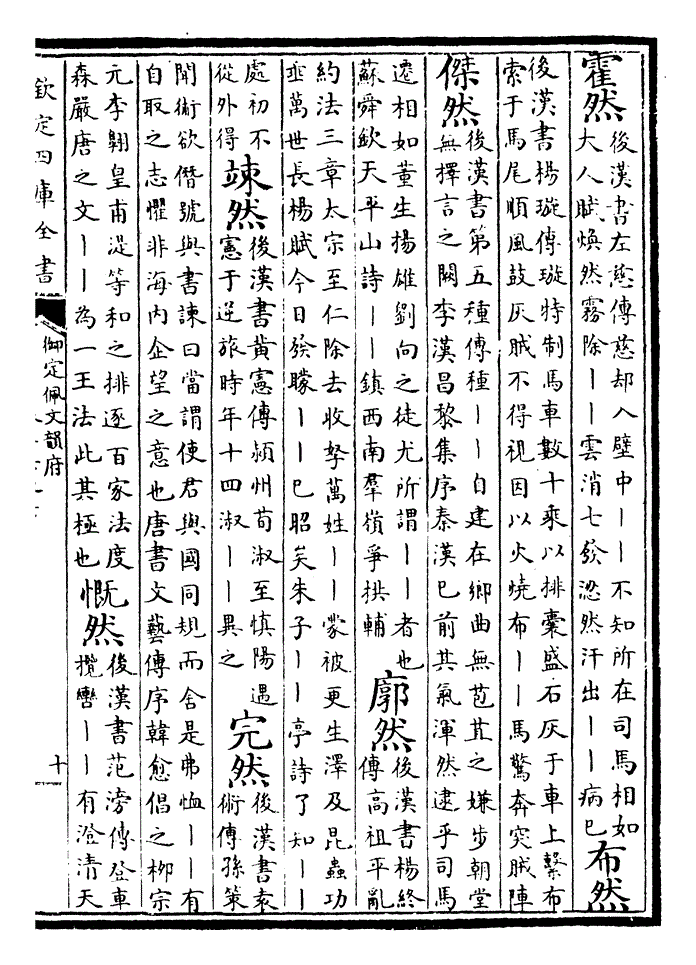 霍然
後漢書左慈傳慈却入壁中丨丨不知所在司馬相如
大人賦煥然霧除丨丨雲消七發涊然汗出丨丨病已
布然
後漢書楊璇傳璇特制馬車數十乘以排囊盛石灰于車上繫布
索于馬尾順風鼓灰賊不得視因以火燒布丨丨馬驚奔突賊陣
傑然
後漢書第五種傳種丨丨自建在鄉曲無苞苴之嫌步朝堂
無擇言之闕李漢昌黎集序秦漢已前其氣渾然逮乎司馬
遷相如董生揚雄劉向之徒尤所謂丨丨者也
蘇舜欽天平山詩丨丨鎮西南羣嶺爭拱輔
廓然
後漢書楊終
傳高祖平亂
約法三章太宗至仁除去收孥萬姓丨丨蒙被更生澤及昆蟲功
垂萬世長楊賦今日發矇丨丨巳昭矣朱子丨丨亭詩了知丨丨
處初不
從外得
竦然
後漢書黃憲傳潁州荀淑至慎陽遇
憲于逆旅時年十四淑丨丨異之
完然
後漢書袁
術傳孫策
聞術欲僭號與書諫曰當謂使君與國同規而舍是弗恤丨丨有
自取之志懼非海內企望之意也唐書文藝傳序韓愈倡之栁宗
元李翺皇甫湜等和之排逐百家法度
森嚴唐之文丨丨為一王法此其極也
慨然
後漢書范滂傳登車
攬轡丨丨有澄清天
欽定四庫全書
御定佩文韻府
十